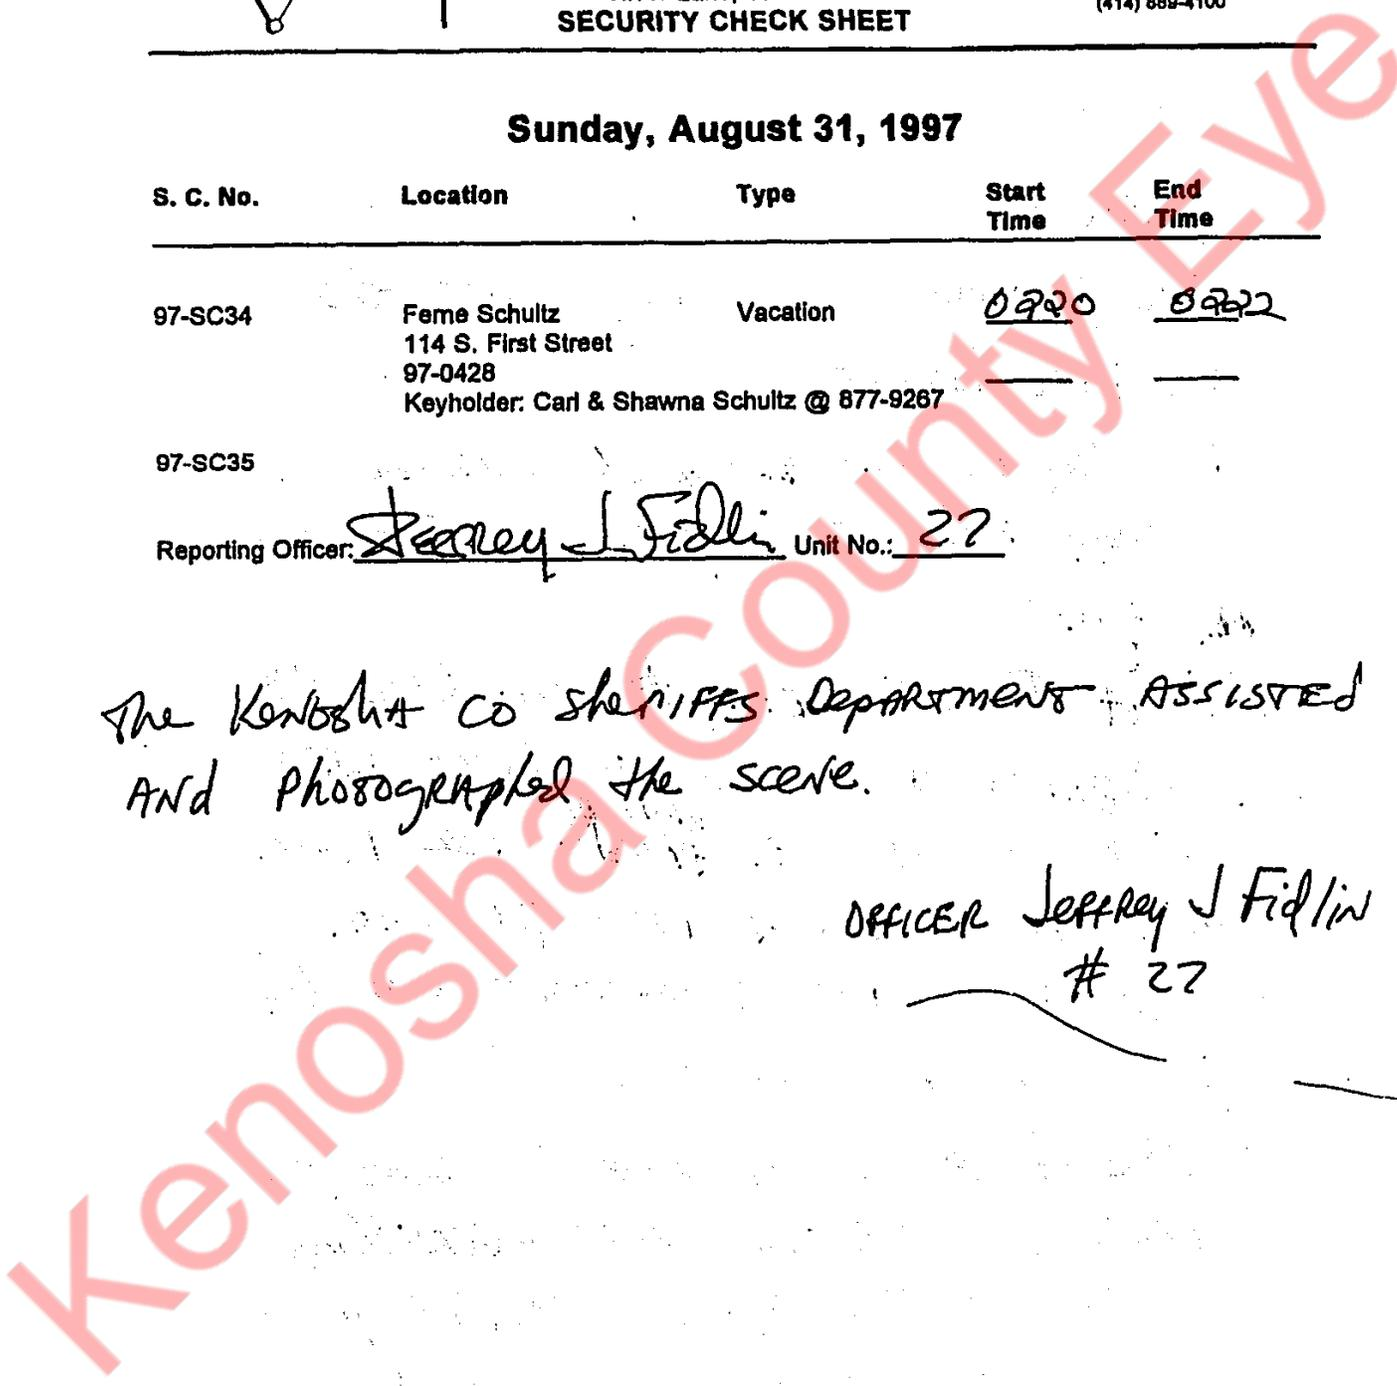 (414) 889-4100
SECURITY CHECK SHEET
Sunday, August 31, 1997
S. C. No. Location Type Start Time End Time
97-SC34 Feme Schultz Vacation 0920 0922
114 S. First Street
97-0428
Keyholder: Carl & Shawna Schultz @ 877-9267
97-SC35
Reporting Officer: Jeffrey J Fidlin Unit No.: 27
The Kenosha Co Sheriffs Department Assisted
And Photographed the scene.
Officer Jeffrey J Fidlin
# 27
Kenosha County Eye